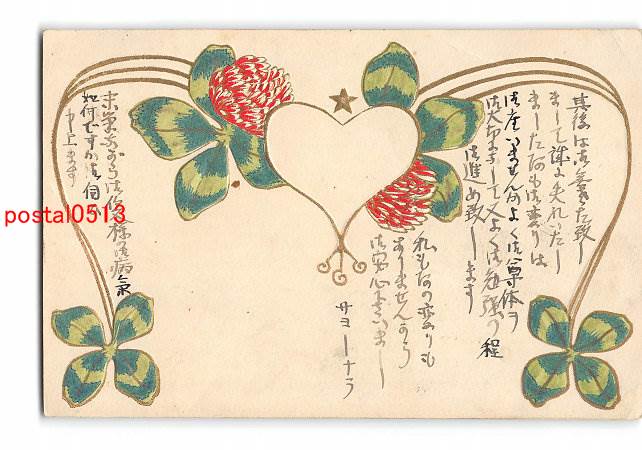 其後は御無沙汰致し
まして誠に失礼いたし
ましたなにも御変りは
御座いませんかよく御尊体ヲ
御大事にして又よく御勉強の程
御進め致します
私もなの変りも
ありませんから
御安心下さいまし
サヨーナラ
末筆ながら御
様の御病氣
如何ですか御伺
申上ます
postal0513